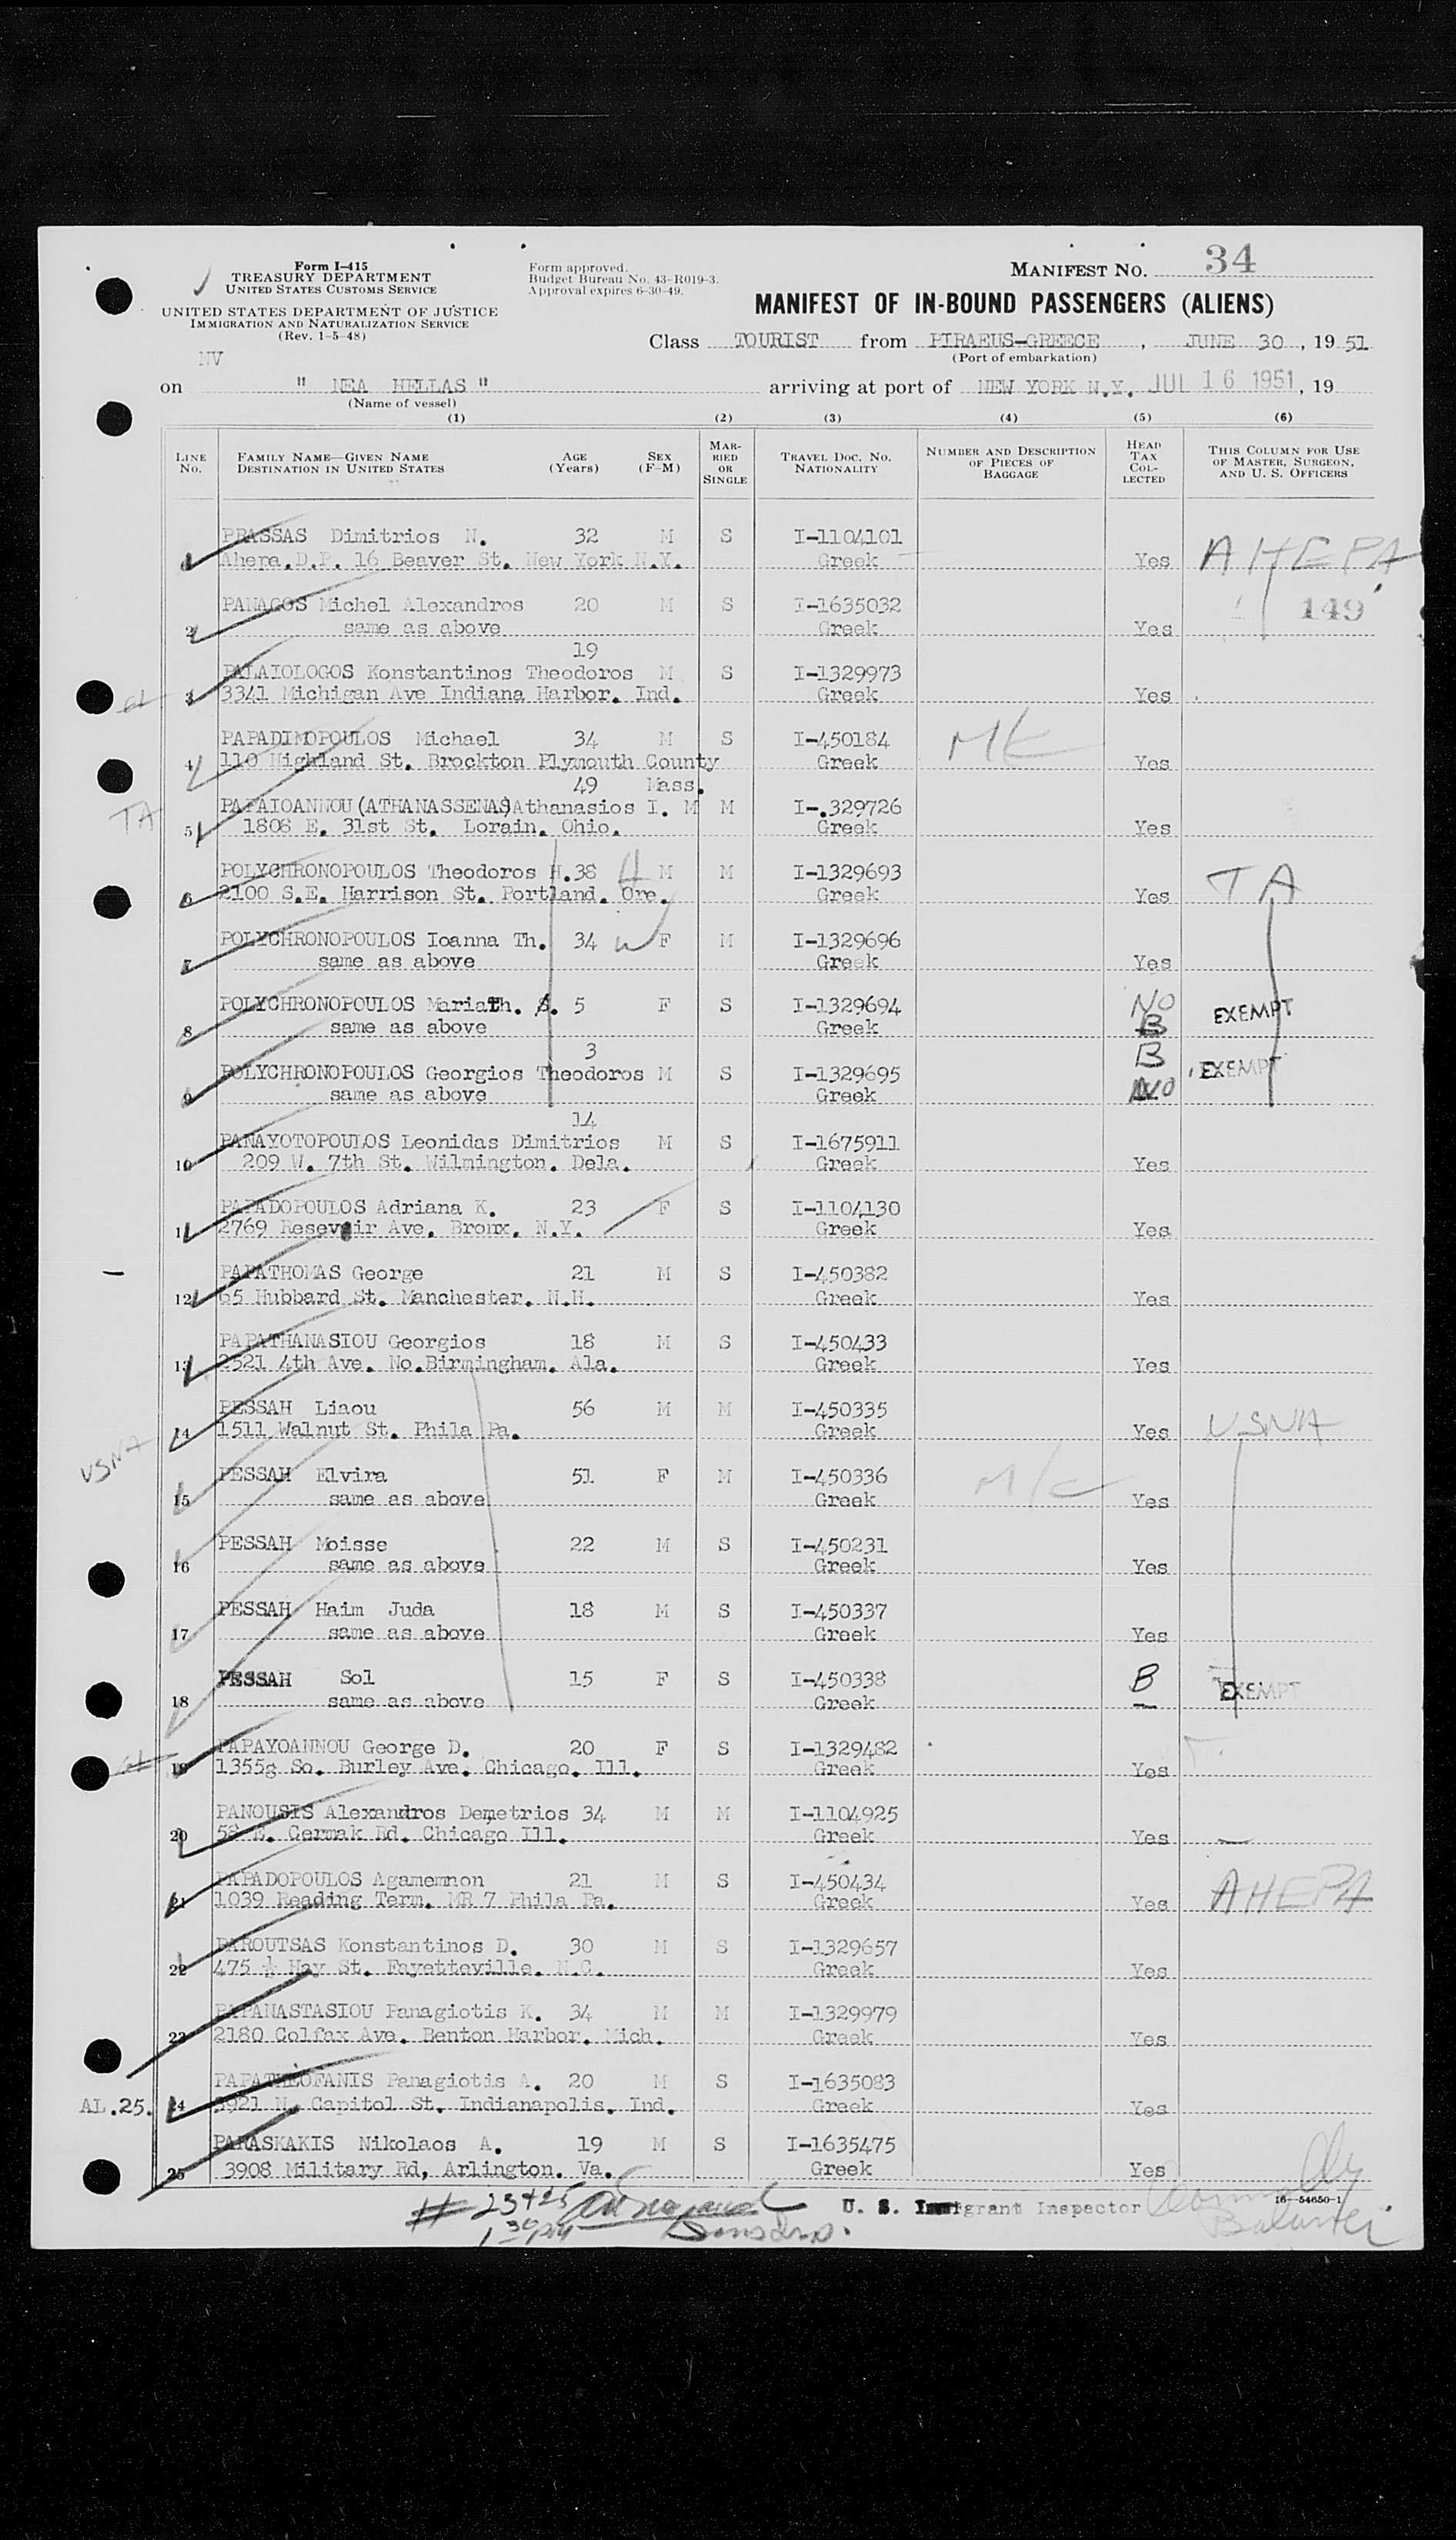 Form I-415
TREASURY DEPARTMENT
UNITED STATES CUSTOMS SERVICE
UNITED STATES DEPARTMENT OF JUSTICE
IMMIGRATION AND NATURALIZATION SERVICE
(Rev. 1-5-48)
Form approved.
Budget Bureau No. 43-R019-3.
Approval expires 6-30-49.
MANIFEST NO. 34
MANIFEST OF IN-BOUND PASSENGERS (ALIENS)
Class TOURIST from PIRAEUS-GREECE, JUNE 30, 19 51
(Port of embarkation)
NV
on " NEA HELLAS " arriving at port of NEW YORK N.Y. JUL 16 1951, 19
(Name of vessel)
(1) (2) (3) (4) (5) (6)
LINE NO. FAMILY NAME—GIVEN NAME DESTINATION IN UNITED STATES AGE (Years) SEX (F-M) MARRIED OR SINGLE TRAVEL DOC. NO. NATIONALITY NUMBER AND DESCRIPTION OF PIECES OF BAGGAGE HEAD TAX COLLECTED THIS COLUMN FOR USE OF MASTER, SURGEON, AND U. S. OFFICERS
PRASSAS Dimitrios N. 32 M S I-1104101
Ahepa.D.P. 16 Beaver St. New York N.Y. Greek Yes AHEPA
PANAGOS Michel Alexandros 20 M S I-1635032 149
2 same as above Greek Yes
19
PALAIOLOGOS Konstantinos Theodoros M S I-1329973
3 3341 Michigan Ave Indiana Harbor. Ind. Greek Yes
PAPADIMOPOULOS Michael 34 M S I-450184
4 110 Highland St. Brockton Plymouth County Greek Yes
49 Mass.
TA PAPAIOANNOU (ATHANASSENAS)Athanasios I. M M I-.329726
5 1808 E. 31st St. Lorain. Ohio. Greek Yes
POLYCHRONOPOULOS Theodoros H.38 H M M I-1329693
6 2100 S.E. Harrison St. Portland. Ore. Greek Yes TA
POLYCHRONOPOULOS Ioanna Th. 34 W F M I-1329696
7 same as above Greek Yes
POLYCHRONOPOULOS Maria Th. 5 F S I-1329694 NO EXEMPT
8 same as above Greek B
3 B
POLYCHRONOPOULOS Georgios Theodoros M S I-1329695 EXEMPT
9 same as above Greek NO
14
PANAYOTOPOULOS Leonidas Dimitrios M S I-1675911
10 209 W. 7th St. Wilmington. Dela. Greek Yes
PAPADOPOULOS Adriana K. 23 F S I-1104130
11 2769 Resevoir Ave. Bronx. N.Y. Greek Yes
PAPATHOMAS George 21 M S I-450382
12 65 Hubbard St. Manchester. N.H. Greek Yes
PAPATHANASIOU Georgios 18 M S I-450433
13 2521 4th Ave. No.Birmingham. Ala. Greek Yes
PESSAH Liaou 56 M M I-450335
14 1511 Walnut St. Phila Pa. Greek Yes USNA
USNA
PESSAH Elvira 51 F M I-450336
15 same as above Greek Yes
PESSAH Moisse 22 M S I-450231
16 same as above Greek Yes
PESSAH Haim Juda 18 M S I-450337
17 same as above Greek Yes
PESSAH Sol 15 F S I-450338 B EXEMPT
18 same as above Greek
PAPAYOANNOU George D. 20 F S I-1329482
19 1355g So. Burley Ave. Chicago. Ill. Greek Yes
PANOUSIS Alexandros Demetrios 34 M M I-1104925
20 58 E. Cermak Rd. Chicago Ill. Greek Yes
PAPADOPOULOS Agamemnon 21 M S I-450434
21 1039 Reading Term. MR 7 Phila Pa. Greek Yes AHEPA
PAROUTSAS Konstantinos D. 30 M S I-1329657
22 475 ½ Hay St. Fayetteville. N.C. Greek Yes
PAPANASTASIOU Panagiotis K. 34 M M I-1329979
23 2180 Colfax Ave. Benton Harbor. Mich. Greek Yes
PAPATHEOFANIS Panagiotis A. 20 M S I-1635083
AL.25. 24 3921 N. Capitol St. Indianapolis. Ind. Greek Yes
PARASKAKIS Nikolaos A. 19 M S I-1635475
25 3908 Military Rd, Arlington. Va. Greek Yes
# 23+25 U. S. Immigrant Inspector 16-54650-1